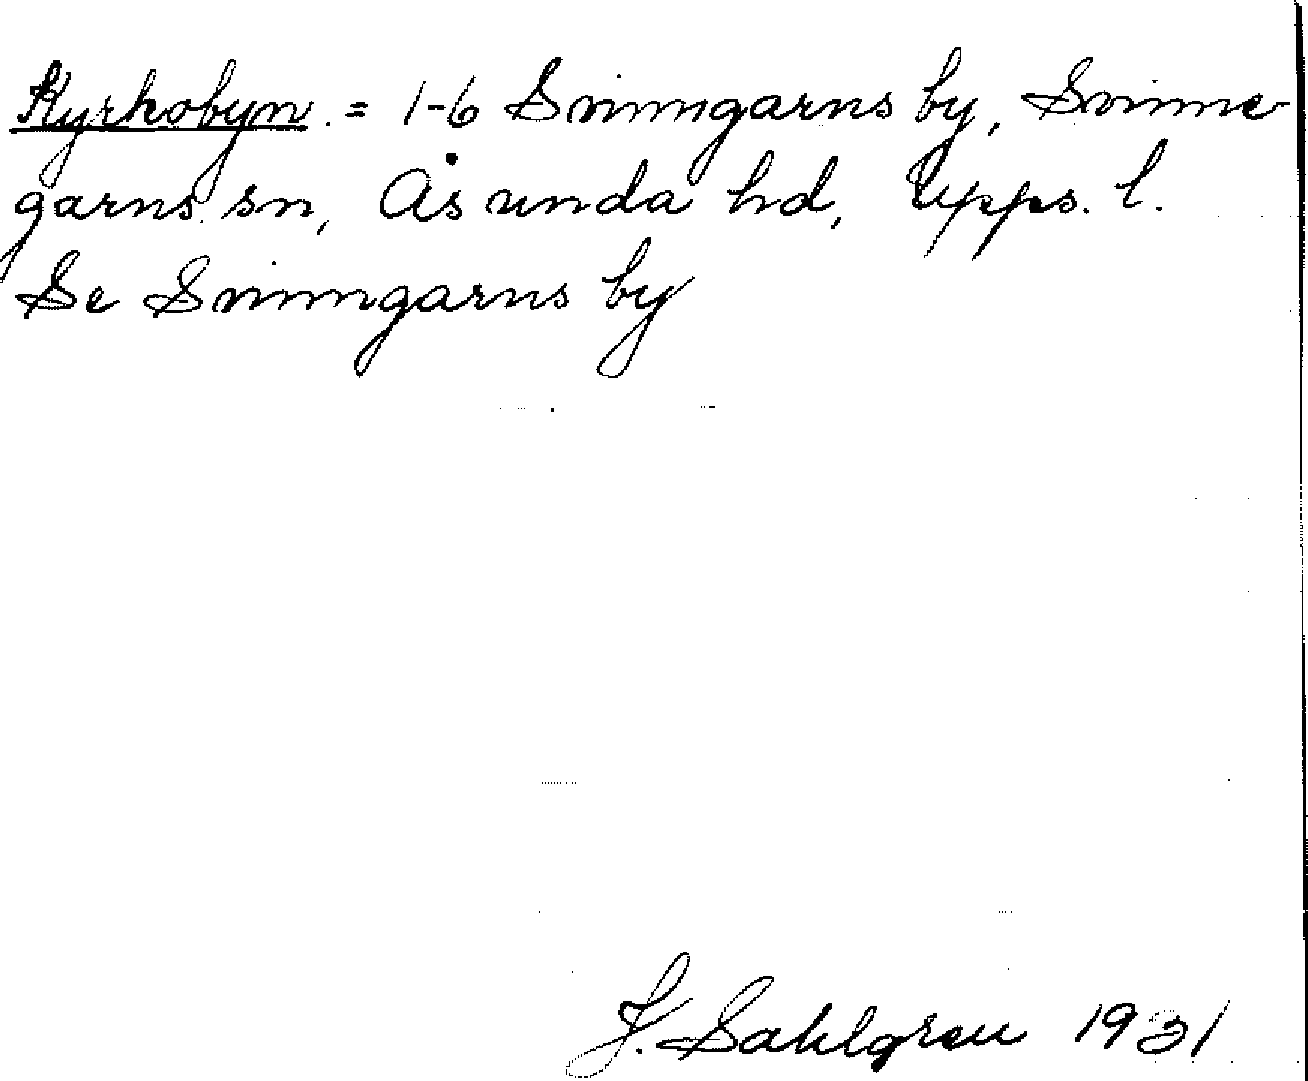 Kyrkobyn. = 1-6 Svinngarns by, Svinne-
garns sn, Åsunda hd, Upps. l.
Se Svinngarns by
J. Sahlgren 1931